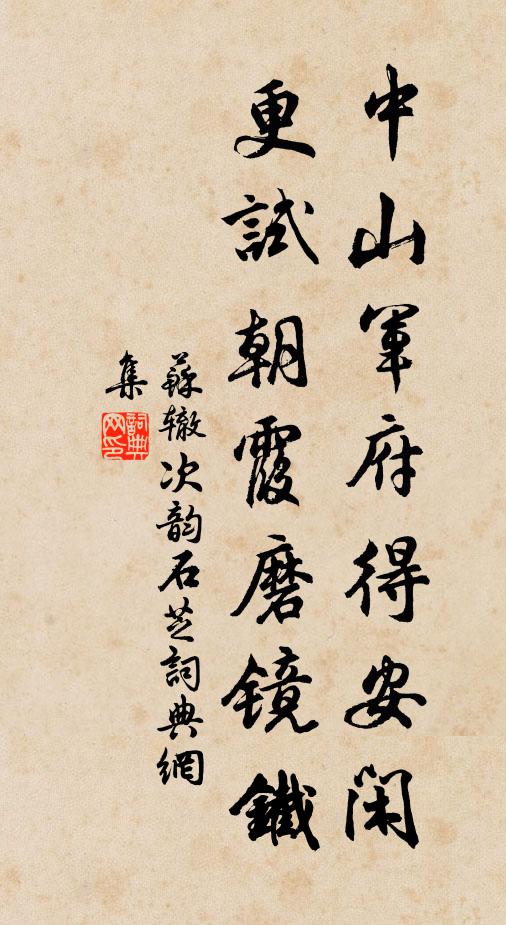 中山軍府得安閑
更試朝霞磨镜鐵
蘇辙次韵石芝詞典網
集
詞典
网印